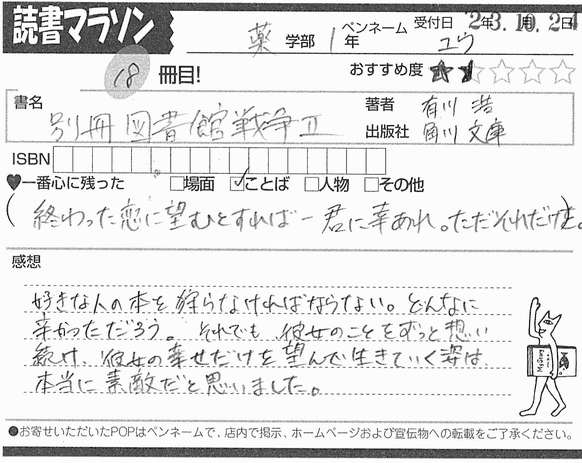 読書マラソン
薬 学部 1 年
ペンネーム ユウ
受付日 2年3.10.2日4
18 冊目!
おすすめ度 ★★☆☆☆
書名 別冊図書館戦争II
著者 有川 浩
出版社 角川文庫
ISBN
♥一番心に残った □場面 ☑ことば □人物 □その他
(終わった恋に望むとすれば一君に幸あれ。ただそれだけだ。)
感想
好きな人の本を狩らなければならない。どんなに
辛かっただろう。それでも、彼女のことをずっと想い
続け、彼女の幸せだけを望んで生きていく姿は、
本当に素敵だと思いました。
●お寄せいただいたPOPはペンネームで、店内で掲示、ホームページおよび宣伝物への転載をご了承ください。